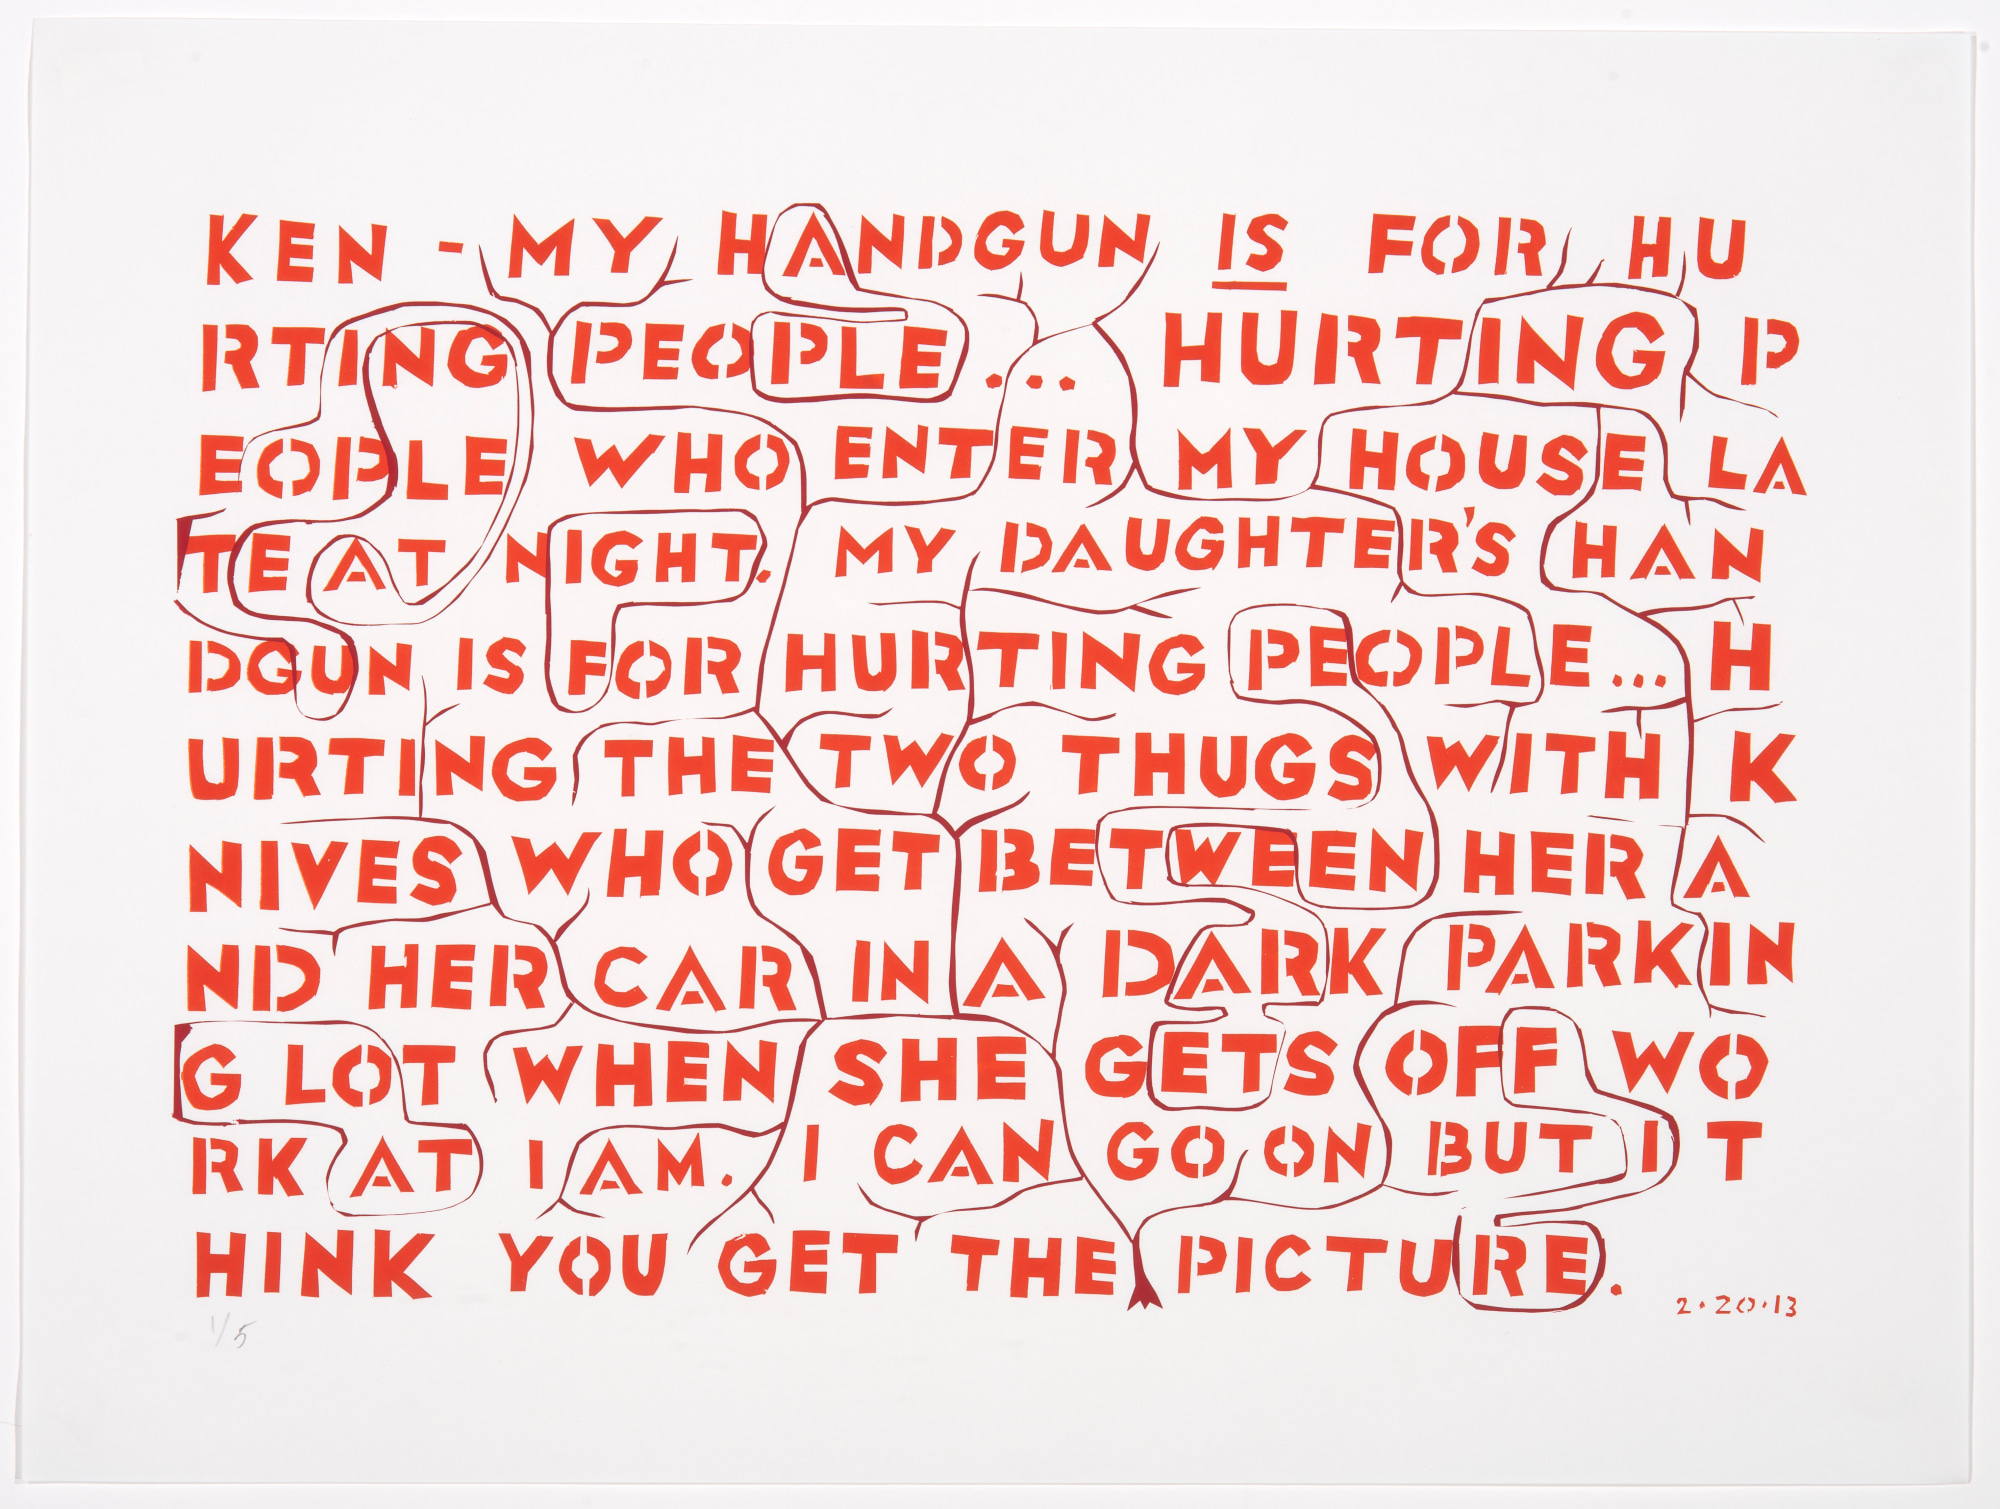 KEN - MY HANDGUN IS FOR HU
RTING PEOPLE... HURTING P
EOPLE WHO ENTER MY HOUSE LA
TE AT NIGHT. MY DAUGHTER'S HAN
DGUN IS FOR HURTING PEOPLE... H
URTING THE TWO THUGS WITH K
NIVES WHO GET BETWEEN HER A
ND HER CAR IN A DARK PARKIN
G LOT WHEN SHE GETS OFF WO
RK AT 1 AM. I CAN GO ON BUT I T
HINK YOU GET THE PICTURE.
2·20·13
1/5